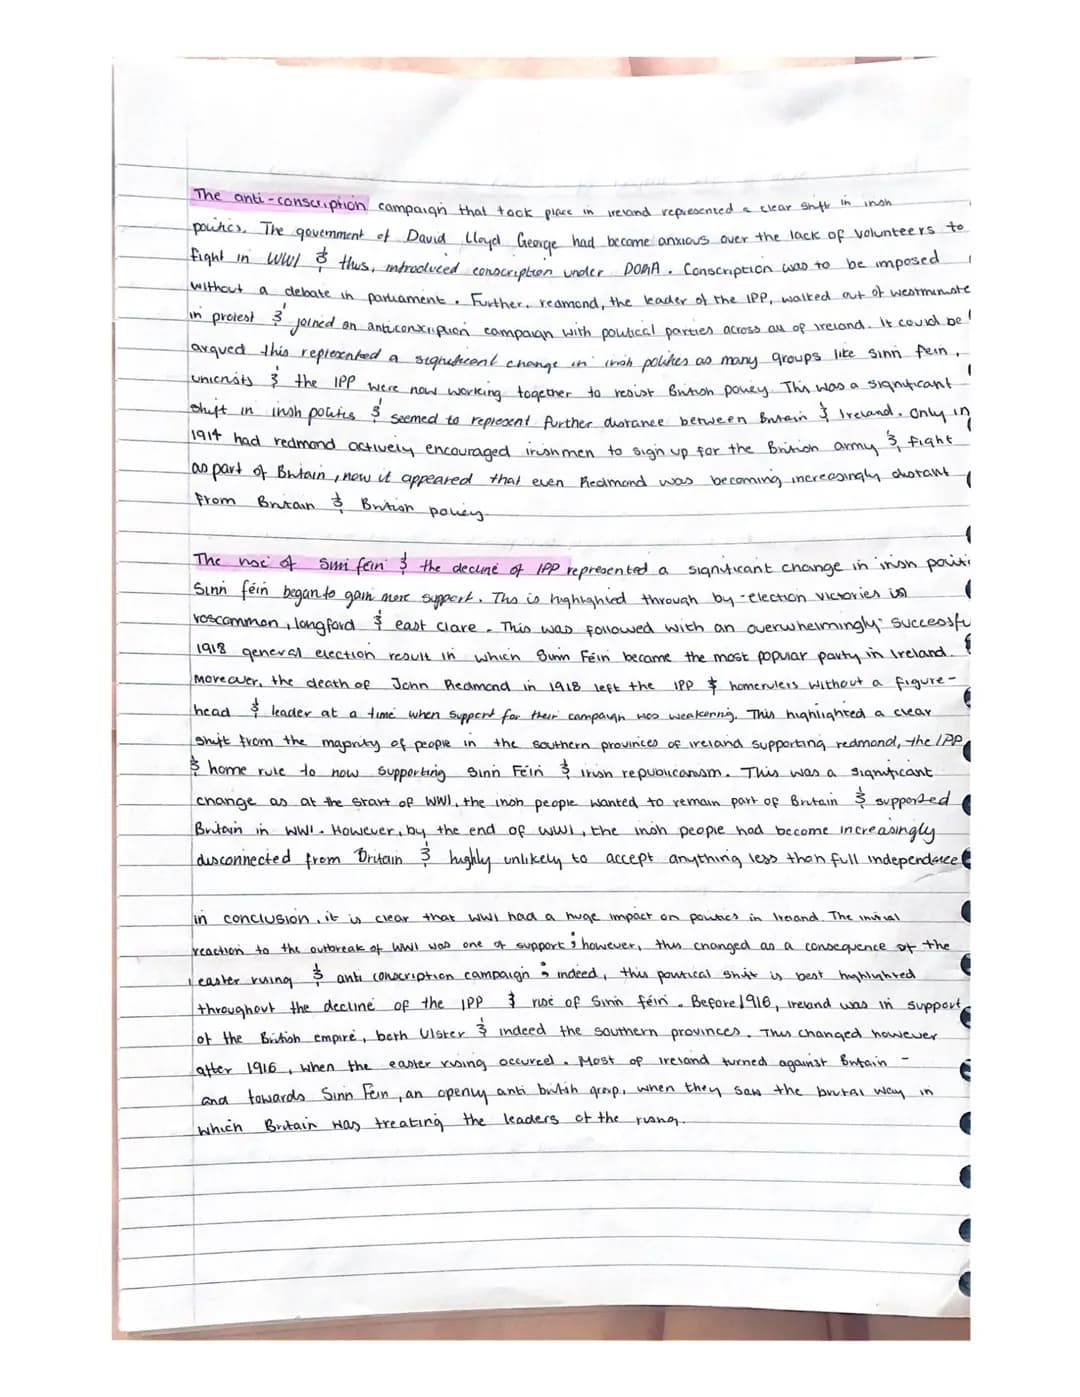 The anti-conscription campaign that took place in ireland represented a clear shift in irish
politics. The government of David Lloyd George had become anxious over the lack of volunteers to
fight in WWI & thus, introduced conscription under DORA. Conscription was to be imposed
without a debate in parliament. Further, redmond, the leader of the IPP, walked out of westminste
in protest & joined an anticonscription campaign with political parties across all of ireland. It could be
argued this represented a significant change in irish politics as many groups like sinn fein,
unionists & the IPP were now working together to resist British policy. This was a significant
shift in irish politics & seemed to represent further distance between Britain & Ireland. Only in
1914 had redmond actively encouraged irishmen to sign up for the British army & fight
as part of Britain, now it appeared that even Redmond was becoming increasingly distant
from Britain & British policy.
The rise of Sinn fein & the decline of IPP represented a significant change in irish politi
Sinn féin began to gain more support. This is highlighted through by-election victories in
roscommon, longford & east clare. This was followed with an overwhelmingly successfu
1918 general election result in which Sinn Féin became the most popular party in Ireland.
Moreover, the death of John Redmond in 1918 left the IPP & homerulers without a figure-
head & leader at a time when support for their campaign was weakening. This highlighted a clear
shift from the majority of people in the southern provinces of ireland supporting redmond, the IPP
& home rule to now supporting Sinn Féin & irish republicanism. This was a significant
change as at the start of WWI, the irish people wanted to remain part of Britain & supported
Britain in WWI. However, by the end of WWI, the irish people had become increasingly
disconnected from Britain & highly unlikely to accept anything less than full independence
in conclusion, it is clear that WWI had a huge impact on politics in Ireland. The initial
reaction to the outbreak of WWI was one of support; however, this changed as a consequence of the
easter rising & anti conscription campaign; indeed, this political shift is best highlighted
throughout the decline of the IPP & rise of Sinn féin. Before 1916, ireland was in support
of the British empire, both Ulster & indeed the southern provinces. This changed however
after 1916, when the easter rising occured. Most of ireland turned against Britain -
and towards Sinn Fein, an openly anti british group, when they saw the brutal way in
which Britain was treating the leaders of the rising.